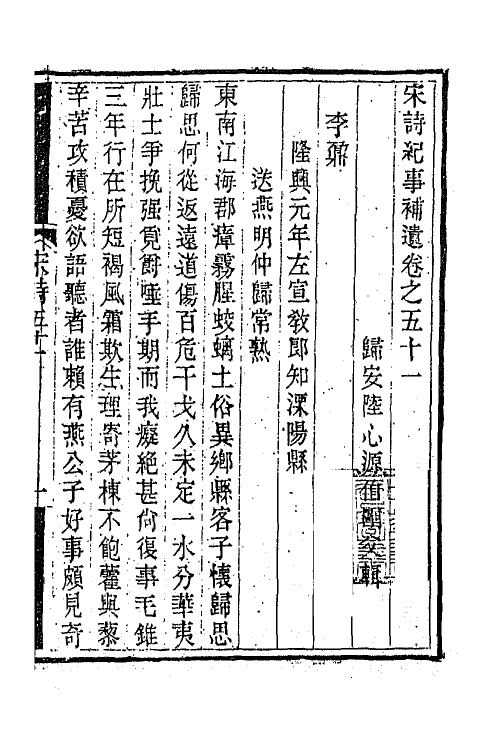 宋詩紀事補遺卷之五十一
歸安陸心源 輯
李鼐
隆興元年左宣教郎知溧陽縣
送燕明仲歸常熟
東南江海郡瘴霧腥蛟螭土俗異鄉縣客子懷歸思
歸思何從返遠道傷百危干戈久未定一水分華夷
壯士爭挽强覓爵唾手期而我癡絶甚尙復事毛錐
三年行在所短褐風霜欺生理寄茅棟不飽藿與藜
辛苦攻積憂欲語聽者誰賴有燕公子好事頗見奇